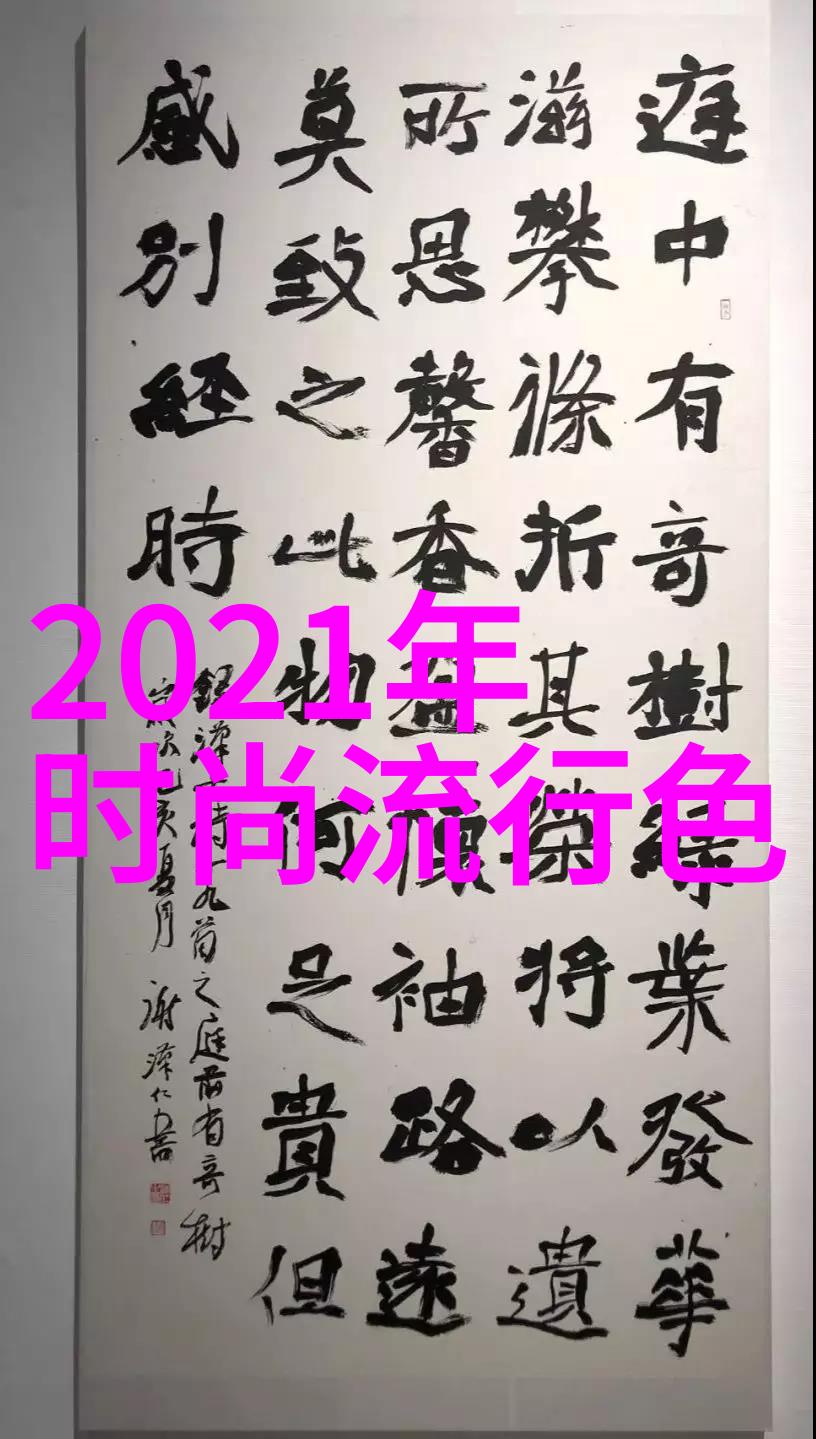 庭中有奇樹綠葉發華
滋攀條折其榮將以遺
所思馨香盈懷袖路遠
莫致之此物何足貴但
感別經時
錄漢詩十九首之庭前有奇樹
己亥夏月 謝澤仁書
2021年
时尚流行色